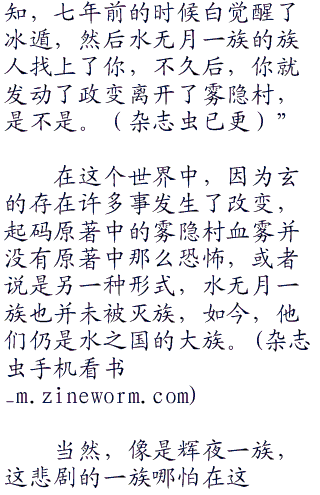 知，七年前的时候白觉醒了
冰遁，然后水无月一族的族
人找上了你，不久后，你就
发动了政变离开了雾隐村，
是不是。（杂志虫已更）”
在这个世界中，因为玄
的存在许多事发生了改变，
起码原著中的雾隐村血雾并
没有原著中那么恐怖，或者
说是另一种形式，水无月一
族也并未被灭族，如今，他
们仍是水之国的大族。(杂志
虫手机看书
_m.zineworm.com)
当然，像是辉夜一族，
这悲剧的一族哪怕在这